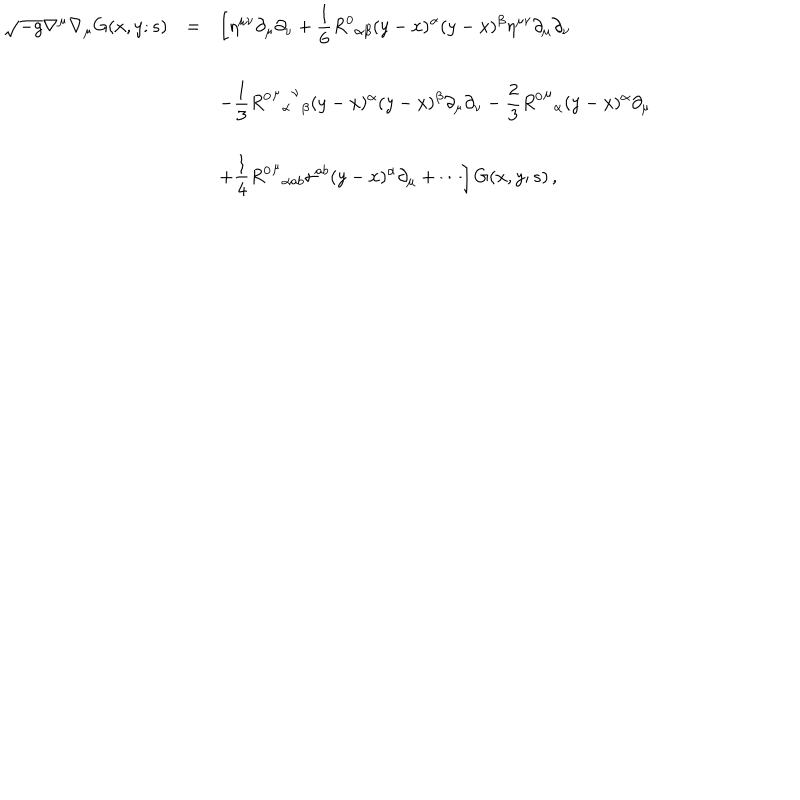 \sqrt{-g}\nabla^{\mu}\nabla_{\mu}G(x,y;s) = \left[\eta^{\mu\nu}\partial_{\mu}\partial_{\nu}+\frac{1}{6}R^{0}{}_{\alpha\beta}(y-x)^{\alpha}(y-x)^{\beta}\eta^{\mu\nu}\partial_{\mu}\partial_{\nu}\right.
-\frac{1}{3}R^{0}{}^{\mu}{}_{\alpha}{}^{\nu}{}_{\beta}(y-x)^{\alpha}(y-x)^{\beta}\partial_{\mu}\partial_{\nu}-\frac{2}{3}R^{0}{}^{\mu}{}_{\alpha}(y-x)^{\alpha}\partial_{\mu}
\left.+\frac{1}{4}R^{0}{}^{\mu}{}_{\alpha ab}\sigma^{ab}(y-x)^{\alpha}\partial_{\mu}+\cdots\right]G(x,y;s)\,,